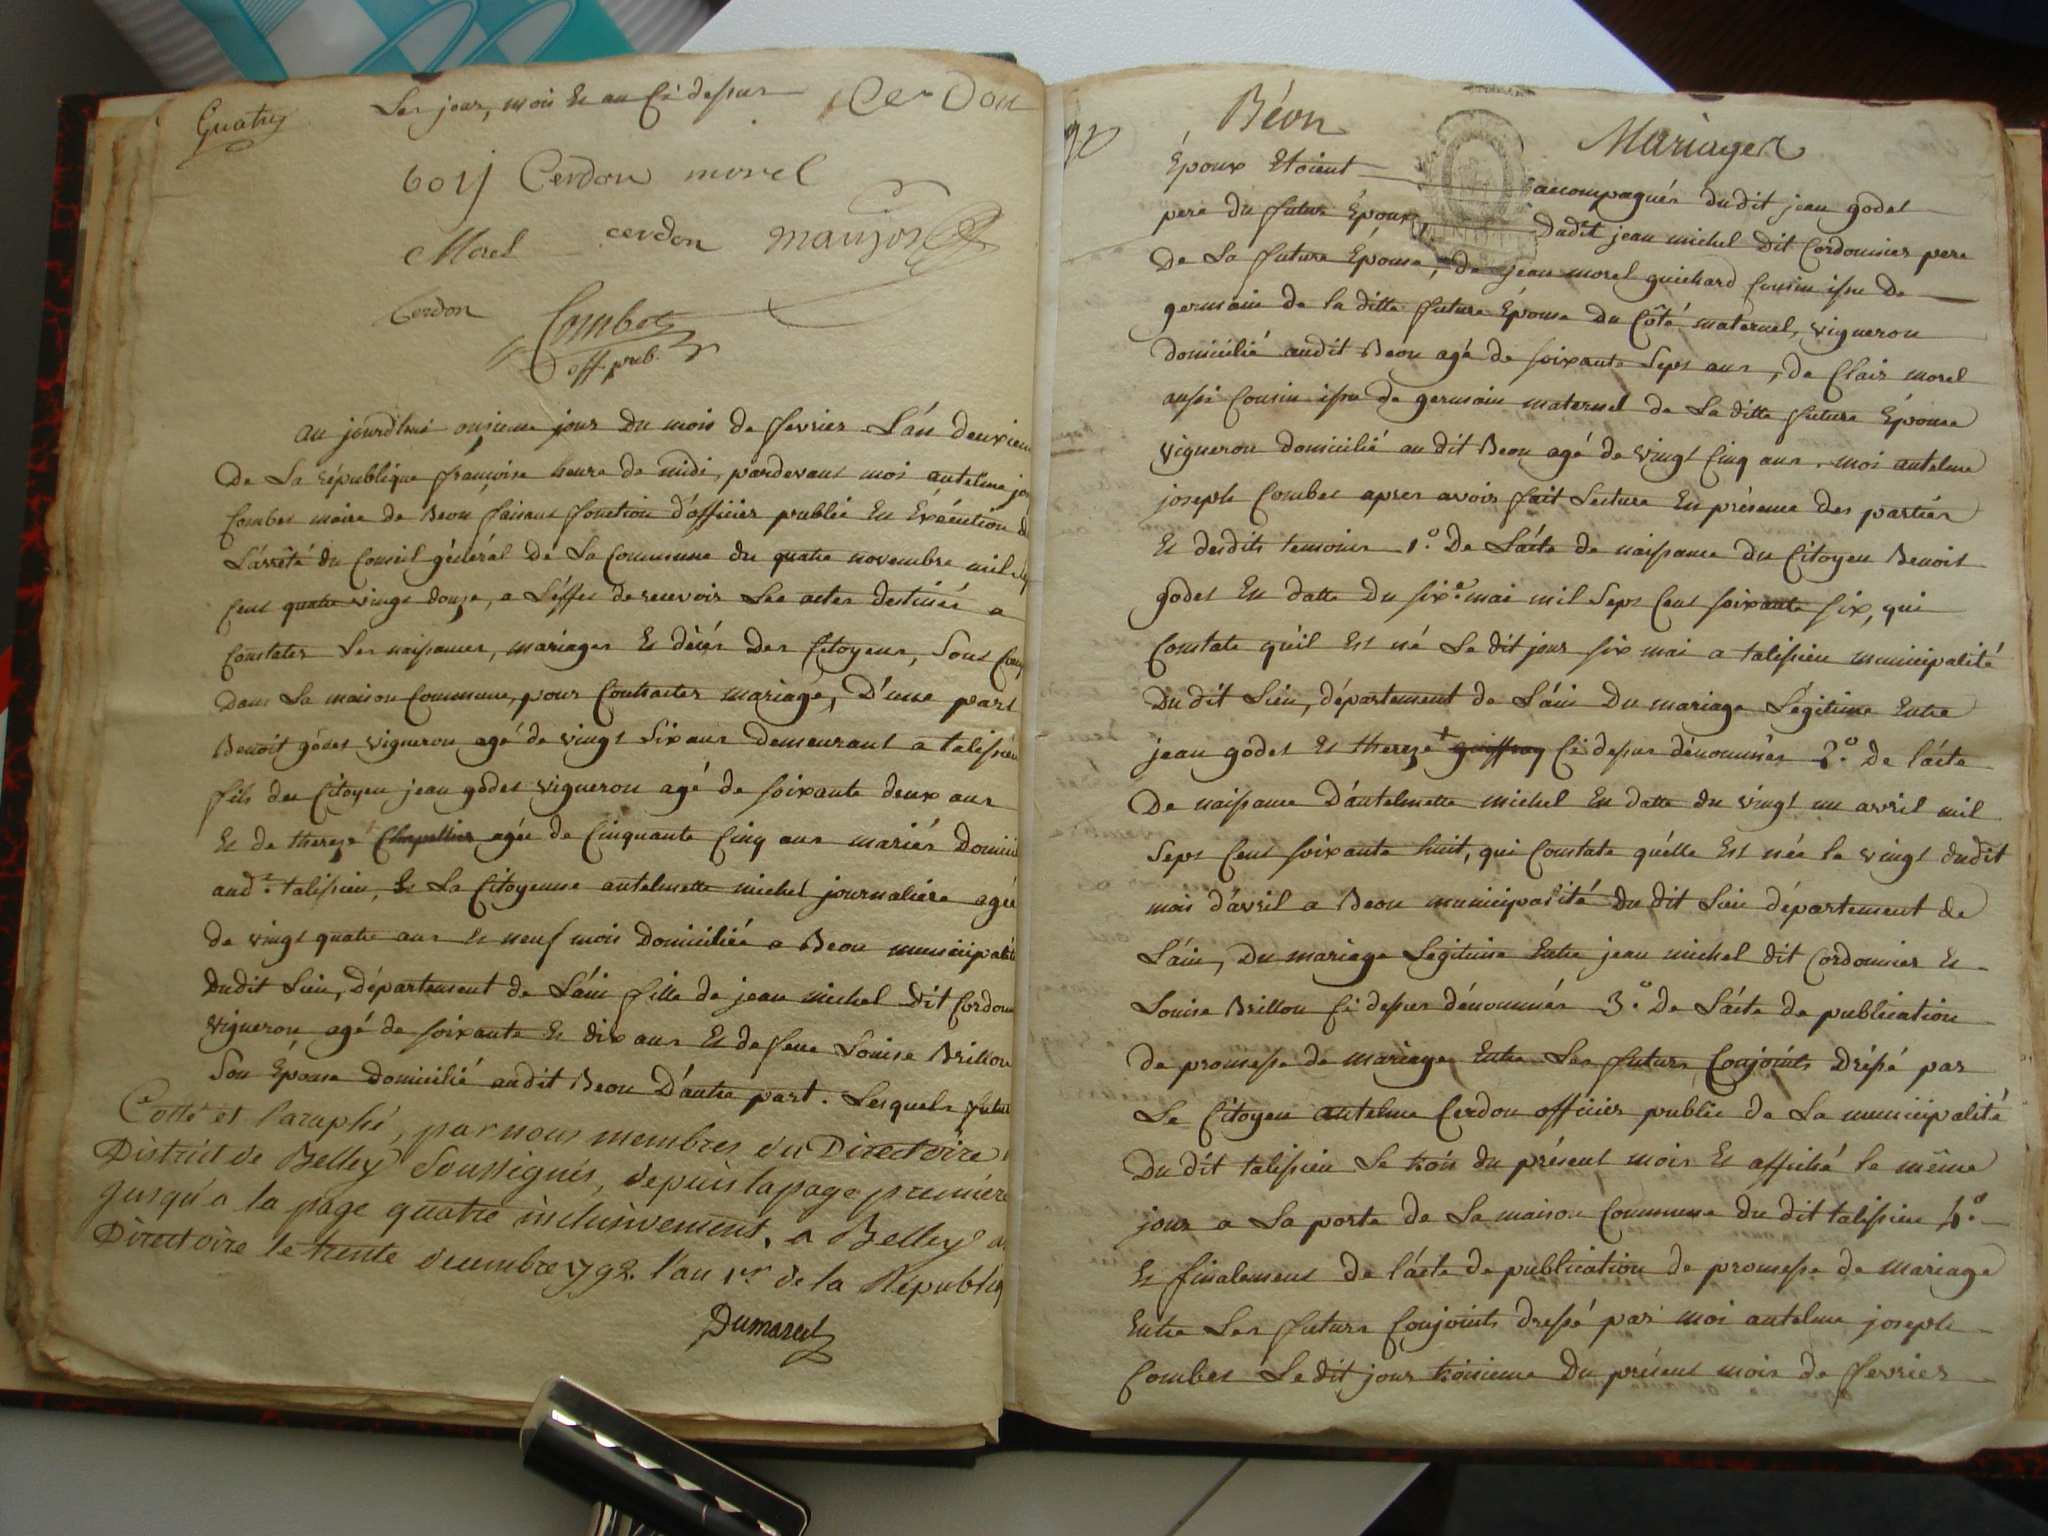 Quatre
Les jour, mois et an ci dessus Cerdon
bory Cerdon morel
Morel cerdon maujot
Cerdon Combet
off. pub.
au jourdhui onzieme jour du mois de fevrier L'an deuxieme
De La republique françoise heure de midi, pardevant moi antelme jos
Combet maire de Beon faisant fonction d'officier public En Exécution de
L'arrêté du Conseil général de La Commune du quatre novembre mil sep
Cent quatre vingt douze, a L'effet de recevoir Les actes destinés a
Constater Les naissances, mariages Et décès Des Citoyens, Sont Comp
Dans La maison Commune, pour Contracter mariage, D'une part
Benoît gôdet vigneron agé de vingt Six ans Demeurant a talissieu
fils du Citoyen jean gôdet vigneron agé de soixante deux ans
Et de thereze Chapellier agée de Cinquante Cinq ans mariés Domici
aud.t talissieu, Et La Citoyenne antelmette michel journaliere agée
De vingt quatre ans Et neuf mois Domiciliée a Beon municipalité
Dudit Lieu, Département de L'ain fille de jean michel Dit Cordon
vigneron agé de soixante Et dix ans Et de feue Louise Brillon
Son Epouse Domicilié audit Beon D'autre part. Lesquels futur
Cotté et Paraphé, par nous membres du Directoire
District de Belley Soussignés, depuis la page premiere
jusqu'a la page quatre inclusivement, a Belley
Directoire le trente decembre 1792. l'an 1er de la Republiq
Dumarest
Béon Mariages
Epoux Etoient accompagnés dudit jean godet
pere du futur Époux, Dudit jean michel dit Cordonnier pere
De La future Épouse, de jean morel guichard Cousin issu De
germain de la ditte future Épouse Du Côté maternel, vigneron
domicilié audit Béon agé de soixante Sept ans, de Clair morel
aussi Cousin issu de germain maternel de La ditte future Épouse
vigneron domicilié au dit Beon agé de vingt Cinq ans. moi antelme
joseph Combet apres avoir fait Lecture En présence des parties
Et desdits temoins 1.° De L'acte de naissance du Citoyen Benoit
godet En datte Du six.e mai mil Sept Cent soixante six, qui
Constate qu'il Est né Le dit jour six mai a talissieu municipalité
Du dit Lieu, département de L'ain Du mariage Légitime Entre
jean godet Et thereze + guiffray Ci dessus dénommés 2.° De l'acte
De naissance D'antelmette michel En datte du vingt un avril mil
Sept Cent soixante huit, qui Constate qu'elle Est née le vingt dudit
mois d'avril a Beon municipalité Du dit Lieu département de
L'ain, Du mariage Légitime Entre jean michel dit Cordonnier Et
Louise Brillon Ci dessus dénommés 3.° De L'acte de publication
De promesse de mariage Entre Les futurs Conjoints dréssé par
Le Citoyen antelme Cerdon officier public de La municipalité
Du dit talissieu Le trois du présent mois Et affiché le même
jour a La porte de La maison Commune du dit talissieu 4.°
Et finalement de l'acte de publication de promesse de mariage
Entre Les futurs Conjoints dressé par moi antelme joseph
Combet Le dit jour troisieme Du présent mois de fevrier